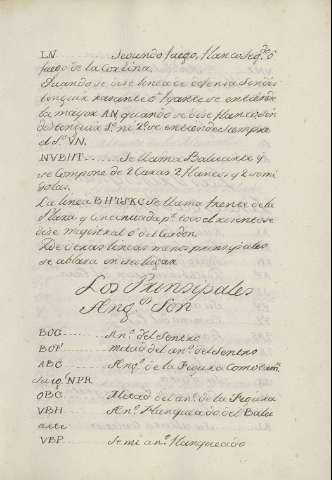 LN ........ Segundo fuego, flanco Seg.do ó
fuego de la Cortina.
Quando se dise linea de defensa sin dis
tinguir rasante ó fijante se entiende
la mayor AN, quando se dise flanco sin
distinguir 1.º ni 2.º se entiende siempre
el 1.º VN.
NVBHT ........ Se llama Baluarte y
se compone de 2 Caras 2 flancos y 2 semi
golas.
La linea BHTSKC se llama frente de la
Plaza y continuada p.r todo el resinto se
dise magistral ó del Cordon.
de otras lineas menos prinsipales
se ablara en su lugar.
Los Prinsipales
Ang.os Son
BOC ........ An.o del Sentro
BOF ........ mitad del an.o del Sentro
ABC ........ Ang.o de la Figura
NPR
OBC ........ Mitad del an.o de la Figura
VBH ........ An.o flanqueado del Balu
arte
VBP ........ Semi an.o flanqueado